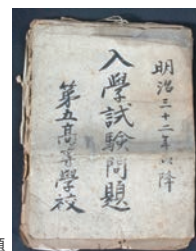 明治三十二年以降
入學試験問題
第五高等學校
題